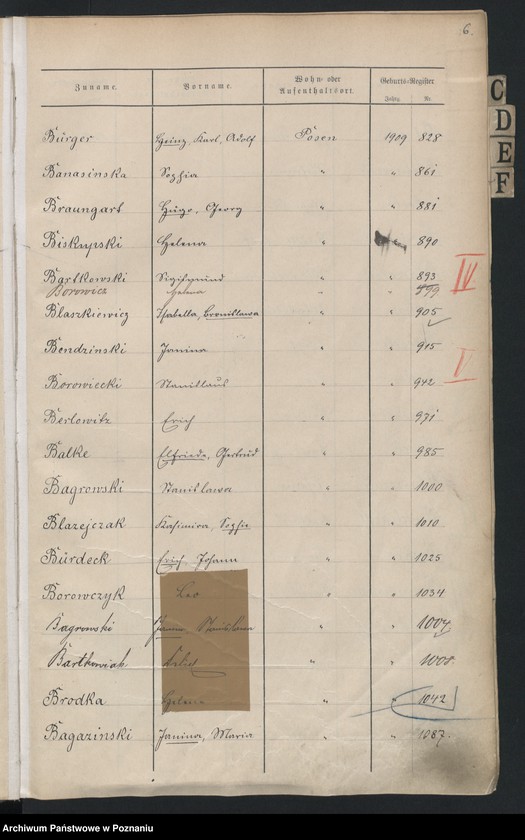 6.
Zuname. Vorname. Wohn- oder Aufenthaltsort. Geburts-Register
Jahrg. Nr.
Bürger Heinz, Karl, Adolf Posen 1909 828
Banasinska Sophia " " 861
Braungart Hugo, Georg " " 881
Biskupski Helena " " 890
Bartkowski Sigismund " " 893
Borowicz Helena " " 899
IV
Blaszkiewicz Isabella, Bronislawa " " 905
Bendzinski Janina " " 915
V
Borowiecki Stanislaus " " 942
Berlowitz Erich " " 971
Balke Elfriede, Gertrud " " 985
Bagrowski Stanislawa " " 1000
Blazejczak Kasimira, Sophie " " 1010
Bürdeck Erich, Johann " " 1025
Borowczyk Leo " " 1034
Bagrowski Stanislawa " " 1007
Bartkowiak " " 1008
Brodka Helena " " 1042
Bagazinski Janina, Maria " " 1087.
C
D
E
F
Archiwum Państwowe w Poznaniu